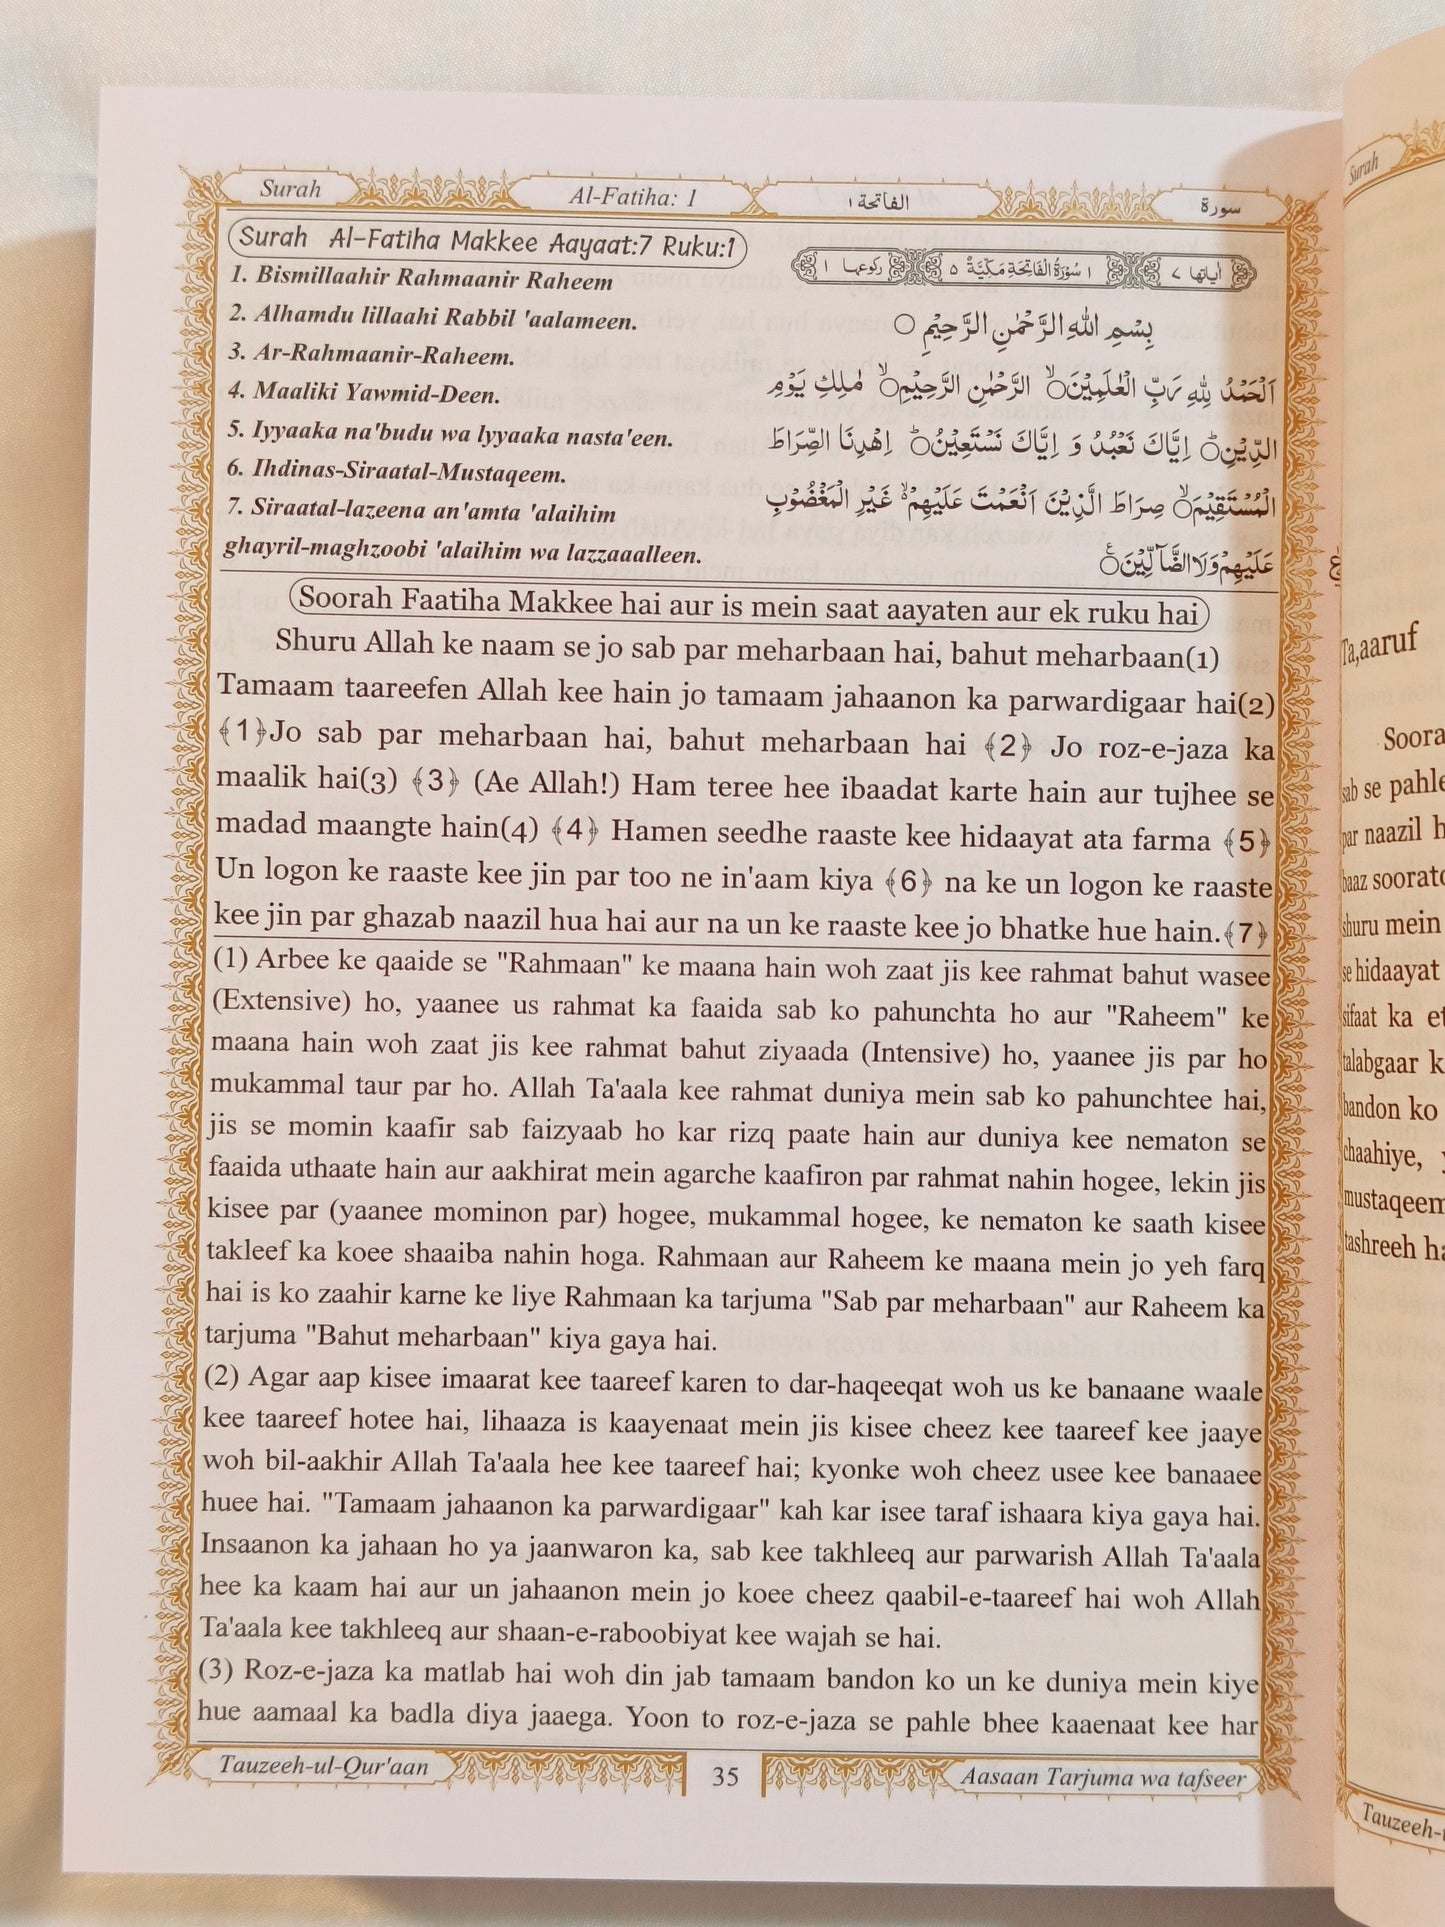 Surah
Al-Fatiha: 1
الفاتحة ١
سورة
Surah Al-Fatiha Makkee Aayaat:7 Ruku:1
1. Bismillaahir Rahmaanir Raheem
2. Alhamdu lillaahi Rabbil 'aalameen.
3. Ar-Rahmaanir-Raheem.
4. Maaliki Yawmid-Deen.
5. Iyyaaka na'budu wa lyyaaka nasta'een.
6. Ihdinas-Siraatal-Mustaqeem.
7. Siraatal-lazeena an'amta 'alaihim
ghayril-maghzoobi 'alaihim wa lazzaaalleen.
اٰیاتها ٧ ١ سُوْرَةُ الْفَاتِحَةِ مَكِّيَّةٌ ٥ ركوعها ١
بِسْمِ اللهِ الرَّحْمٰنِ الرَّحِيْمِ ○
اَلْحَمْدُ لِلّٰهِ رَبِّ الْعٰلَمِيْنَ ۙ○ الرَّحْمٰنِ الرَّحِيْمِ ۙ○ مٰلِكِ يَوْمِ
الدِّيْنِ ؕ○ اِيَّاكَ نَعْبُدُ وَ اِيَّاكَ نَسْتَعِيْنُ ؕ○ اِهْدِنَا الصِّرَاطَ
الْمُسْتَقِيْمَ ۙ○ صِرَاطَ الَّذِيْنَ اَنْعَمْتَ عَلَيْهِمْ ۙ غَيْرِ الْمَغْضُوْبِ
عَلَيْهِمْ وَلَا الضَّآلِّيْنَ ○
Soorah Faatiha Makkee hai aur is mein saat aayaten aur ek ruku hai
Shuru Allah ke naam se jo sab par meharbaan hai, bahut meharbaan(1)
Tamaam taareefen Allah kee hain jo tamaam jahaanon ka parwardigaar hai(2)
﴾1﴿Jo sab par meharbaan hai, bahut meharbaan hai ﴾2﴿ Jo roz-e-jaza ka
maalik hai(3) ﴾3﴿ (Ae Allah!) Ham teree hee ibaadat karte hain aur tujhee se
madad maangte hain(4) ﴾4﴿ Hamen seedhe raaste kee hidaayat ata farma ﴾5﴿
Un logon ke raaste kee jin par too ne in'aam kiya ﴾6﴿ na ke un logon ke raaste
kee jin par ghazab naazil hua hai aur na un ke raaste kee jo bhatke hue hain.﴾7﴿
(1) Arbee ke qaaide se "Rahmaan" ke maana hain woh zaat jis kee rahmat bahut wasee
(Extensive) ho, yaanee us rahmat ka faaida sab ko pahunchta ho aur "Raheem" ke
maana hain woh zaat jis kee rahmat bahut ziyaada (Intensive) ho, yaanee jis par ho
mukammal taur par ho. Allah Ta'aala kee rahmat duniya mein sab ko pahunchtee hai,
jis se momin kaafir sab faizyaab ho kar rizq paate hain aur duniya kee nematon se
faaida uthaate hain aur aakhirat mein agarche kaafiron par rahmat nahin hogee, lekin jis
kisee par (yaanee mominon par) hogee, mukammal hogee, ke nematon ke saath kisee
takleef ka koee shaaiba nahin hoga. Rahmaan aur Raheem ke maana mein jo yeh farq
hai is ko zaahir karne ke liye Rahmaan ka tarjuma "Sab par meharbaan" aur Raheem ka
tarjuma "Bahut meharbaan" kiya gaya hai.
(2) Agar aap kisee imaarat kee taareef karen to dar-haqeeqat woh us ke banaane waale
kee taareef hotee hai, lihaaza is kaayenaat mein jis kisee cheez kee taareef kee jaaye
woh bil-aakhir Allah Ta'aala hee kee taareef hai; kyonke woh cheez usee kee banaaee
huee hai. "Tamaam jahaanon ka parwardigaar" kah kar isee taraf ishaara kiya gaya hai.
Insaanon ka jahaan ho ya jaanwaron ka, sab kee takhleeq aur parwarish Allah Ta'aala
hee ka kaam hai aur un jahaanon mein jo koee cheez qaabil-e-taareef hai woh Allah
Ta'aala kee takhleeq aur shaan-e-raboobiyat kee wajah se hai.
(3) Roz-e-jaza ka matlab hai woh din jab tamaam bandon ko un ke duniya mein kiye
hue aamaal ka badla diya jaaega. Yoon to roz-e-jaza se pahle bhee kaaenaat kee har
Tauzeeh-ul-Qur'aan
35
Aasaan Tarjuma wa tafseer
Surah
Ta,aaruf
Soora
sab se pahle
par naazil h
baaz soorato
shuru mein
se hidaayat
sifaat ka et
talabgaar k
bandon ko
chaahiye,
mustaqeem
tashreeh ha
Tauzeeh-